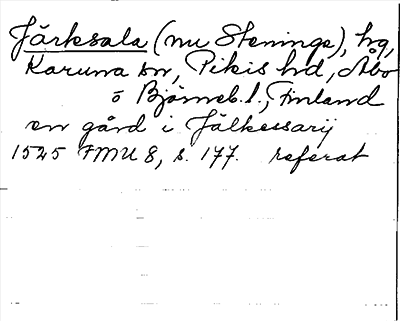 Järksala (nu Steninge), hg,
Karuna sn, Pikis hd, Åbo
o Björneb. l., Finland
en gård i Jälkessarÿ
1525 FMU 8, s. 177. referat